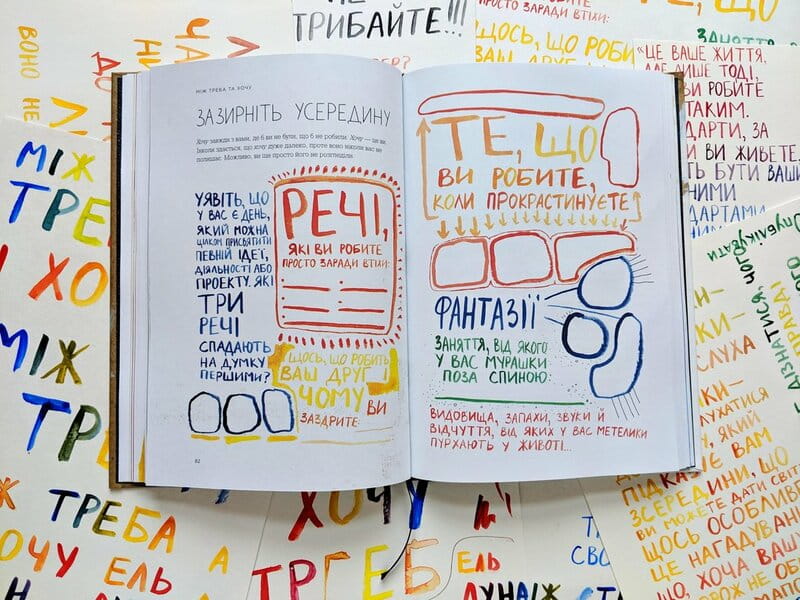 МІЖ ТРЕБА ТА ХОЧУ
ЗАЗИРНІТЬ УСЕРЕДИНУ
Хочу завжди з вами, де б ви не були, що б не робили. Хочу — це ви.
Інколи здається, що хочу дуже далеко, проте воно ніколи вас не
полишає. Можливо, ви ще просто його не розгледіли.
УЯВІТЬ, ЩО
У ВАС Є ДЕНЬ,
ЯКИЙ МОЖНА
ЦІЛКОМ ПРИСВЯТИТИ
ПЕВНІЙ ІДЕЇ,
ДІЯЛЬНОСТІ АБО
ПРОЕКТУ. ЯКІ
ТРИ
РЕЧІ
СПАДАЮТЬ
НА ДУМКУ
ПЕРШИМИ?
РЕЧІ,
ЯКІ ВИ РОБИТЕ
ПРОСТО ЗАРАДИ ВТІХИ:
ЩОСЬ, ЩО РОБИТЬ
ВАШ ДРУГ І
ЧОМУ ВИ
ЗАЗДРИТЕ:
82
ТЕ, ЩО
ВИ РОБИТЕ,
КОЛИ ПРОКРАСТИНУЄТЕ
ФАНТАЗІЇ
ЗАНЯТТЯ, ВІД ЯКОГО
У ВАС МУРАШКИ
ПОЗА СПИНОЮ:
ВИДОВИЩА, ЗАПАХИ, ЗВУКИ Й
ВІДЧУТТЯ, ВІД ЯКИХ У ВАС МЕТЕЛИКИ
ПУРХАЮТЬ У ЖИВОТІ...
ТРИБАЙТЕ!!!
ВОНО НЕ
МІЖ
ТРЕБ
ХОЧУ
МІЖ
ТРЕБ
ТРЕБА
ХОЧУ ЕЛЬ
ХОЧУ
ТРГЕБ
ЕЛЬ
ПРОСТО ЗАРАДИ ВТІХИ:
ЩОСЬ, ЩО РОБИ
ВАШ ДРУГ
ЗАНЯТТЯ
“ЦЕ ВАШЕ ЖИТТЯ,
АЛЕ ЛИШЕ ТОДІ,
ВИ РОБИТЕ
ТАКИМ.
ДАРТИ, ЗА
И ВИ ЖИВЕТЕ.
ТЬ БУТИ ВАШИ
ДАРТАМИ
ОПУБЛІКУВАТИ
ДІЗНАТИСЯ, ЧОГО
СЛУХАТИСЯ
ЯКИЙ
ПІДКАЗУЄ ВАМ
ЗСЕРЕДИНИ, ЩО
ВИ МОЖЕТЕ ДАТИ СВІТ
ЩОСЬ ОСОБЛИВЕ
ЦЕ НАГАДУВАН
ЩО, ХОЧА ВАШУ